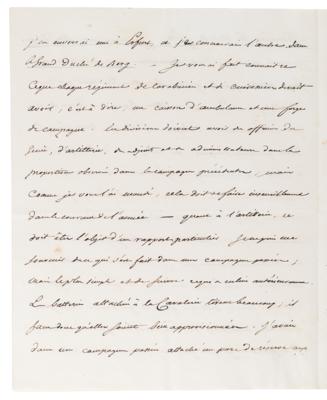 j'en enverrai un à Erfurt, et j'en conserverai l'autre dans
le Grand Duché de Berg. — Je vous ai fait connaître
ce que chaque régiment de carabiniers et de cuirassiers devait
avoir; c'est à dire, un caisson d'ambulance et une forge
de campagne. Les divisions doivent avoir des officiers du
Génie, d'artillerie, des adjoints et des administrateurs dans la
proportion observée dans les campagnes précédentes; mais
comme je vous l'ai mandé, cela doit se faire insensiblement
dans le courant de l'année — quant à l'artillerie, ce
doit être l'objet d'un rapport particulier. J'ai qui me
souvenir de ce qui s'est fait dans une campagne passée;
mais le plus simple et de suivre ce qui a eu lieu antérieurement.
Les batteries attachées à la Cavalerie tirent beaucoup; il
faut donc qu'elles soient bien approvisionnées. J'avais
dans une campagne passée attaché un parc de réserve aux